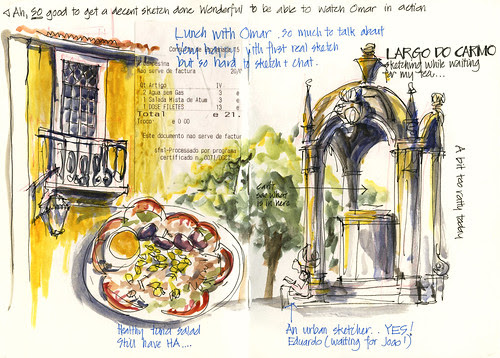 Ah, SO good to get a decent sketch done Wonderful to be able to watch Omar in action
Lunch with Omar. so much to talk about
Very happy with first real sketch
but so hard to sketch + chat.
Não serve de factura
20/0
Qt Artigo IV
2 Agua sem Gas 3
1 Salada Mista de Atum 3
1 DOSE FILETES 13
Total e 21.
Troco: e 0
Este documento nao serve de factur
Processado por programa
certificado n.
LARGO DO CARMO
sketching while waiting
for my tea...
Can't
see what
is in here
A bit too ratty today
Healthy tuna salad
Still have HA....
An urban sketcher.. YES!
Eduardo (waiting for João!)